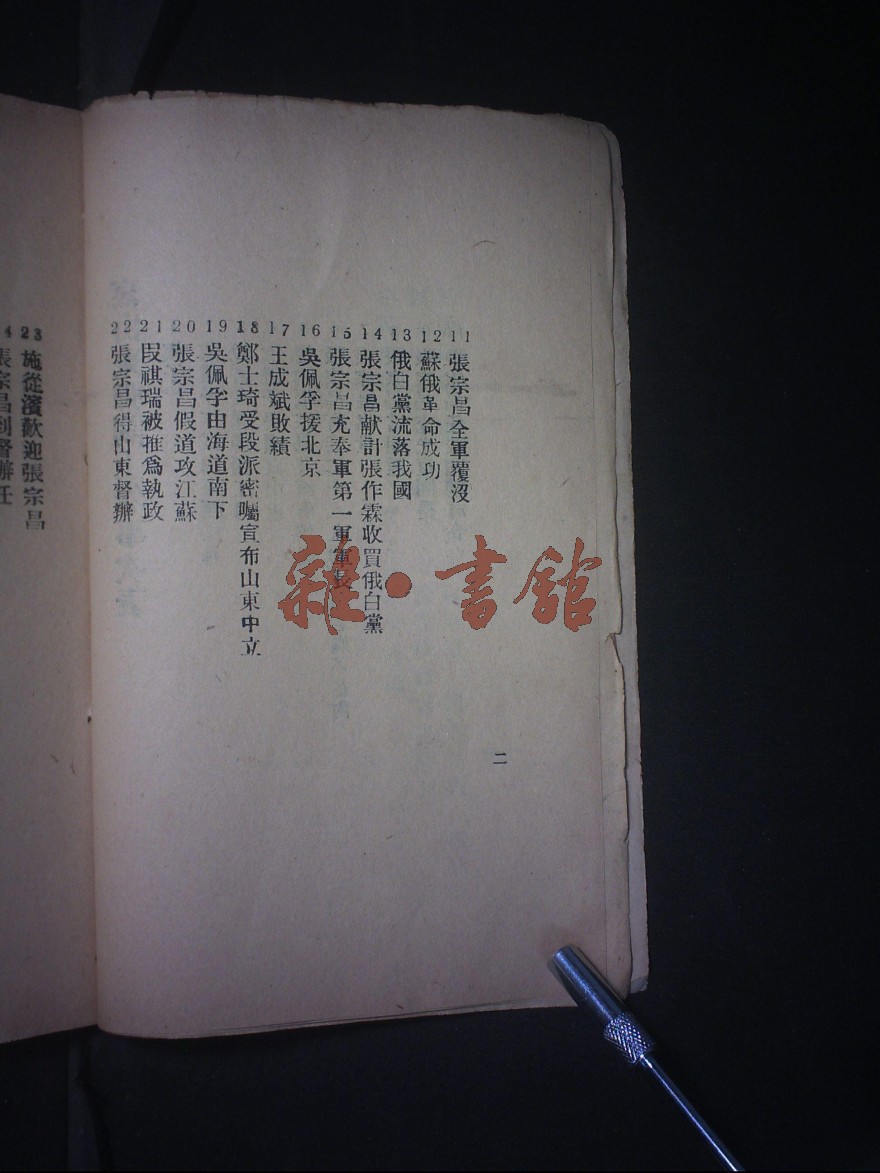 11 張宗昌全軍覆沒
12 蘇俄革命成功
13 俄白黨流落我國
14 張宗昌献計張作霖收買俄白黨
15 張宗昌充奉軍第一軍軍長
16 吳佩孚援北京
17 王成斌敗績
18 鄭士琦受段派密囑宣布山東中立
19 吳佩孚由海道南下
20 張宗昌假道攻江蘇
21 段祺瑞被推爲執政
22 張宗昌得山東督辦
二
23 施從濱歡迎張宗昌
4 張宗昌到督辦任
雜·書館